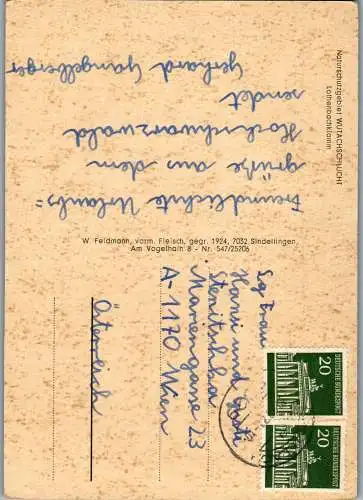 Naturschutzgebiet WUTACHSCHLUCHT
Lothenbachklamm
Freundlichste Urlaubs=
grüße aus dem
Hochschwarzwald
sendet
Gerhard Gangelberger
W. Feldmann, vorm. Fleisch, gegr. 1924, 7032 Sindelfingen,
Am Vogelhain 8 - Nr. 547/25206
Sg Frau
Hansi und Gusti
Mariengasse 23
A-1170 Wien
Österreich
20
DEUTSCHE BUNDESPOST
20
DEUTSCHE BUNDESPOST